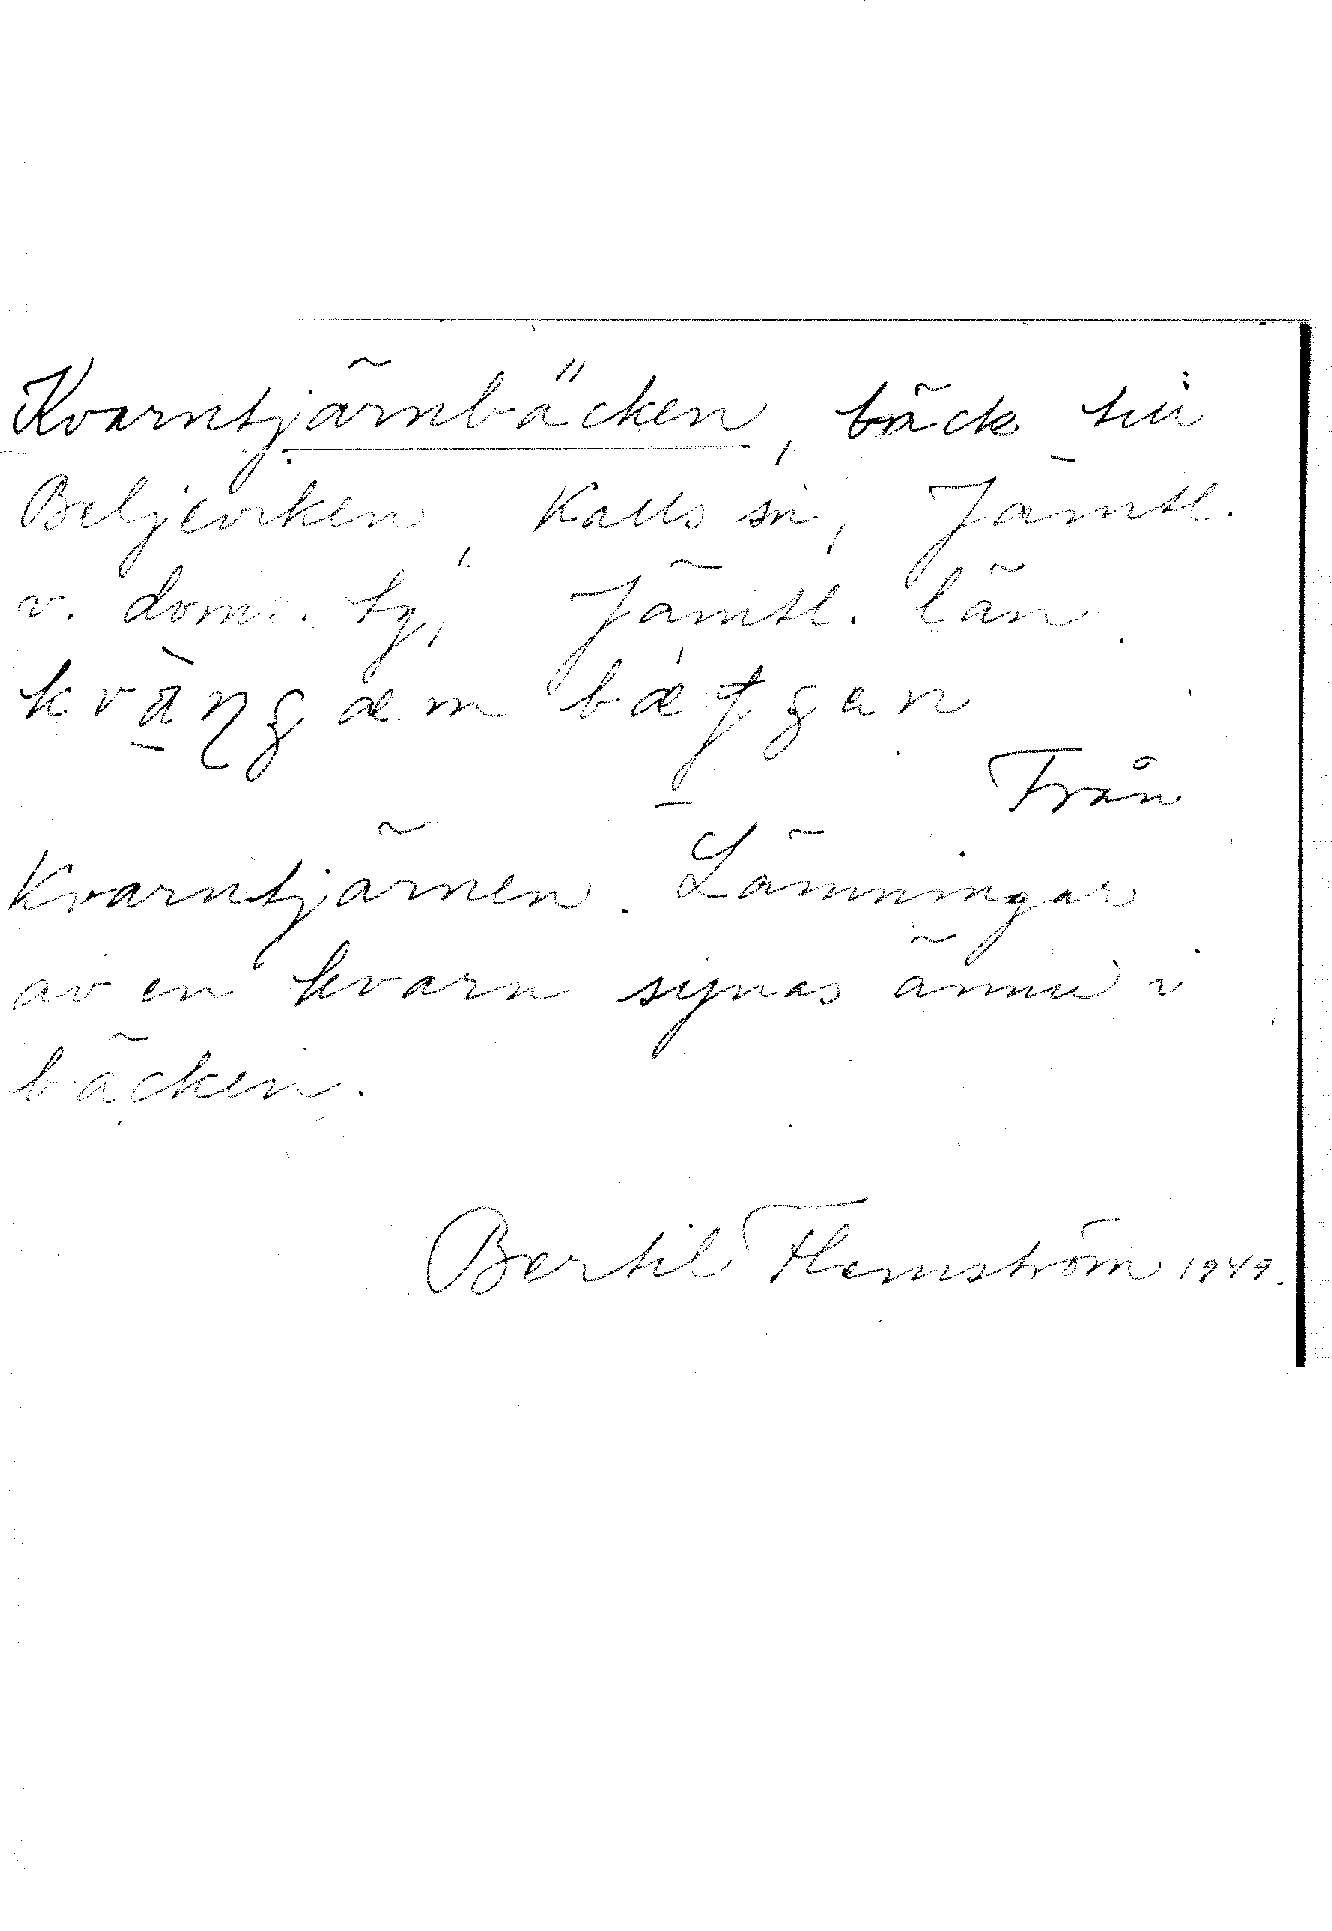 Kvarntjärnbäcken, bäck till
Beljeviken, Kalls sn, Jämtl.
v. doms. tg, Jämtl. län
Från
Kvarntjärnen. Lämningar
av en kvarn synas ännu i
bäcken.
Bertil Flemström 1949.